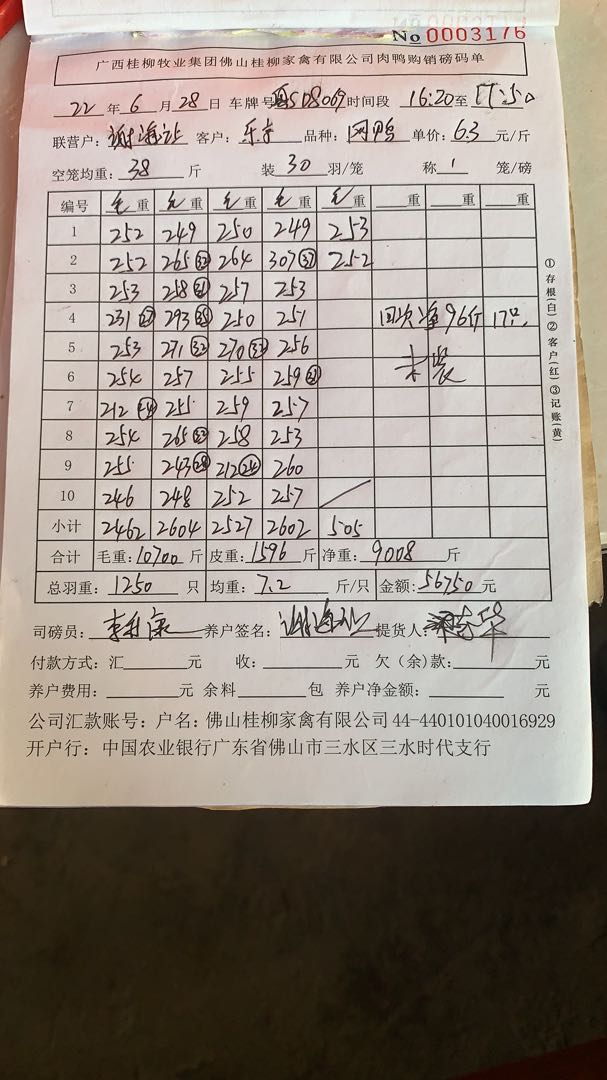 No 0003176
广西桂柳牧业集团佛山桂柳家禽有限公司肉鸭购销磅码单
22 年 6 月 28 日 车牌号 粤SD8069 时间段 16:20 至 17:50
联营户: 谢海 客户: 乐 品种: 网鸭 单价: 6.3 元/斤
空笼均重: 38 斤 装 30 羽/笼 称 1 笼/磅
编号 毛重 毛重 毛重 毛重 毛重 重 重 重
1 252 249 250 249 253
2 252 265 32 264 307 37 252
3 253 258 31 257 253
4 231 27 293 35 250 251 回次净96斤 17只
5 253 271 32 270 32 256 未装
6 254 257 255 259 31
7 212 24 255 259 257
8 254 265 32 258 253
9 255 243 28 212 24 260
10 246 248 252 257
小计 2462 2604 2527 2602 505
合计 毛重: 10700 斤 皮重: 1596 斤 净重: 9008 斤
总羽重: 1250 只 均重: 7.2 斤/只 金额: 56750 元
司磅员: 李 康 养户签名: 谢海 提货人: 华
付款方式: 汇 元 收: 元 欠(余)款: 元
养户费用: 元 余料 包 养户净金额: 元
公司汇款账号: 户名: 佛山桂柳家禽有限公司 44-440101040016929
开户行: 中国农业银行广东省佛山市三水区三水时代支行
①存根(白)②客户(红)③记账(黄)